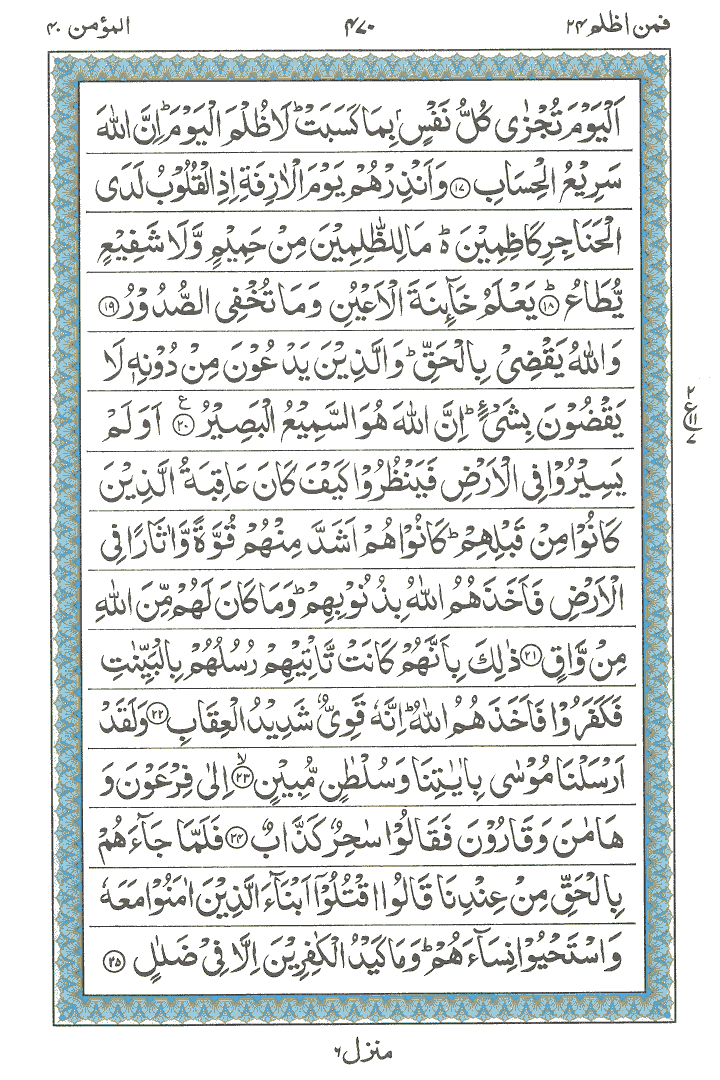 فمن اظلم ٢٤ ٤٧٠ المؤمن ٤٠
اَلْيَوْمَ تُجْزٰى كُلُّ نَفْسٍۭ بِمَا كَسَبَتْ ؕ لَا ظُلْمَ الْيَوْمَ ؕ اِنَّ اللّٰهَ
سَرِيْعُ الْحِسَابِ ﴿١٧﴾ وَاَنْذِرْهُمْ يَوْمَ الْاٰزِفَةِ اِذِ الْقُلُوْبُ لَدَى
الْحَنَاجِرِ كَاظِمِيْنَ ۬ؕ مَا لِلظّٰلِمِيْنَ مِنْ حَمِيْمٍ وَّلَا شَفِيْعٍ
يُّطَاعُ ؕ﴿١٨﴾ يَعْلَمُ خَآئِنَةَ الْاَعْيُنِ وَمَا تُخْفِى الصُّدُوْرُ ﴿١٩﴾
وَاللّٰهُ يَقْضِىْ بِالْحَقِّ ؕ وَالَّذِيْنَ يَدْعُوْنَ مِنْ دُوْنِهٖ لَا
يَقْضُوْنَ بِشَىْءٍ ؕ اِنَّ اللّٰهَ هُوَ السَّمِيْعُ الْبَصِيْرُ ﴿٢٠﴾ ع اَوَلَمْ
٢ ع ١١ ٧
يَسِيْرُوْا فِى الْاَرْضِ فَيَنْظُرُوْا كَيْفَ كَانَ عَاقِبَةُ الَّذِيْنَ
كَانُوْا مِنْ قَبْلِهِمْ ؕ كَانُوْا هُمْ اَشَدَّ مِنْهُمْ قُوَّةً وَّاٰثَارًا فِى
الْاَرْضِ فَاَخَذَهُمُ اللّٰهُ بِذُنُوْبِهِمْ ؕ وَمَا كَانَ لَهُمْ مِّنَ اللّٰهِ
مِنْ وَّاقٍ ﴿٢١﴾ ذٰلِكَ بِاَنَّهُمْ كَانَتْ تَّاْتِيْهِمْ رُسُلُهُمْ بِالْبَيِّنٰتِ
فَكَفَرُوْا فَاَخَذَهُمُ اللّٰهُ ؕ اِنَّهٗ قَوِىٌّ شَدِيْدُ الْعِقَابِ ﴿٢٢﴾ وَلَقَدْ
اَرْسَلْنَا مُوْسٰى بِاٰيٰتِنَا وَسُلْطٰنٍ مُّبِيْنٍ ۙ﴿٢٣﴾ اِلٰى فِرْعَوْنَ وَ
هَامٰنَ وَقَارُوْنَ فَقَالُوْا سٰحِرٌ كَذَّابٌ ﴿٢٤﴾ فَلَمَّا جَآءَهُمْ
بِالْحَقِّ مِنْ عِنْدِنَا قَالُوا اقْتُلُوْۤا اَبْنَآءَ الَّذِيْنَ اٰمَنُوْا مَعَهٗ
وَاسْتَحْيُوْا نِسَآءَهُمْ ؕ وَمَا كَيْدُ الْكٰفِرِيْنَ اِلَّا فِىْ ضَلٰلٍ ﴿٢٥﴾
منزل ٦